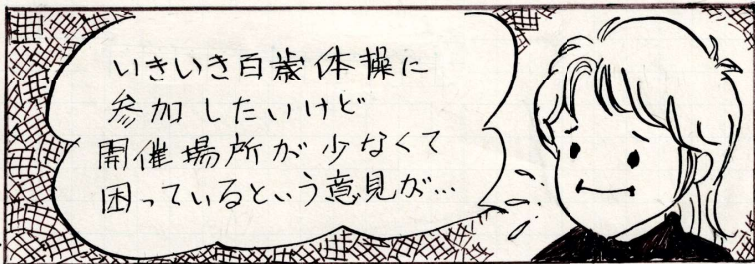 いきいき百歳体操に
参加したいけど
開催場所が少なくて
困っているという意見が…